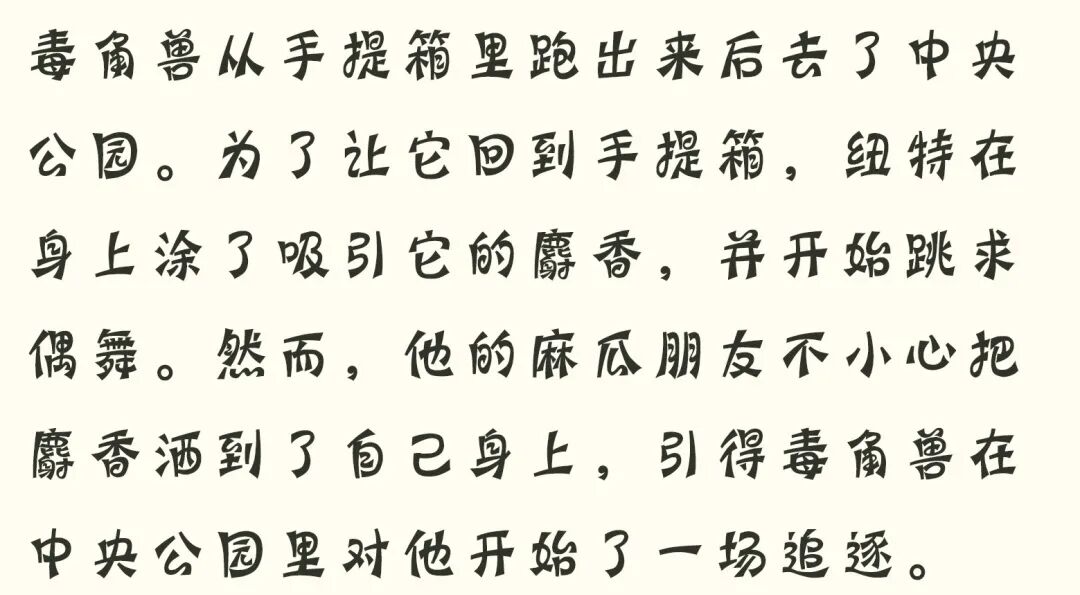 毒角兽从手提箱里跑出来后去了中央
公园。为了让它回到手提箱，纽特在
身上涂了吸引它的麝香，并开始跳求
偶舞。然而，他的麻瓜朋友不小心把
麝香洒到了自己身上，引得毒角兽在
中央公园里对他开始了一场追逐。